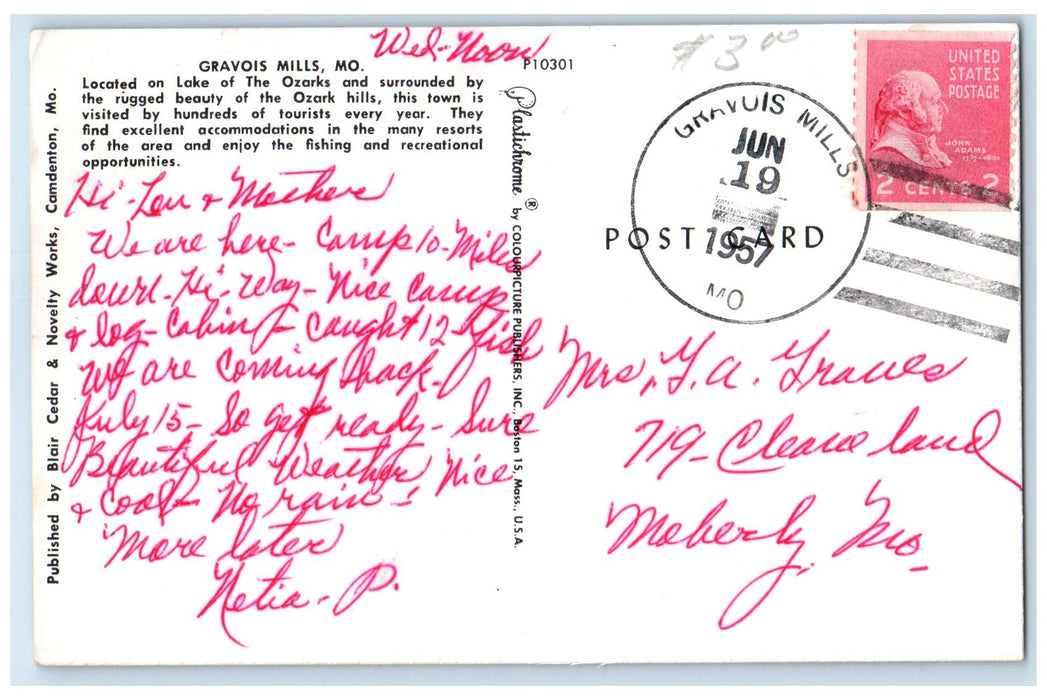 Wed-Noon
GRAVOIS MILLS, MO.
P10301
Located on Lake of The Ozarks and surrounded by
the rugged beauty of the Ozark hills, this town is
visited by hundreds of tourists every year. They
find excellent accommodations in the many resorts
of the area and enjoy the fishing and recreational
opportunities.
Hi - Lou & Mother
We are here - Camp 10 - Miles
down - Hi-Way - Nice Camp
& log - Cabin - Caught 12 - fish
We are coming back -
July 15 - So get ready - Sure
Beautiful Weather Nice
& Cool - No rain -
More later
Netia - P.
Published by Blair Cedar & Novelty Works, Camdenton, Mo.
Plastichrome ® by COLOURPICTURE PUBLISHERS, INC., Boston 15, Mass., U.S.A.
$3.00
GRAVOIS MILLS
JUN
19
1957
MO
POST CARD
UNITED
STATES
POSTAGE
JOHN
ADAMS
1797-1801
2 CENTS 2
Mrs, G. A. Graves
719 - Cleaveland
Moberly, Mo.